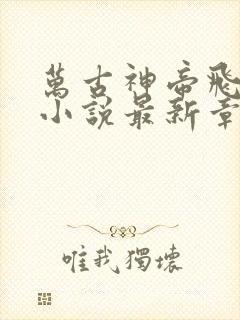 萬古神帝飛
小說最新章
唯我獨壞